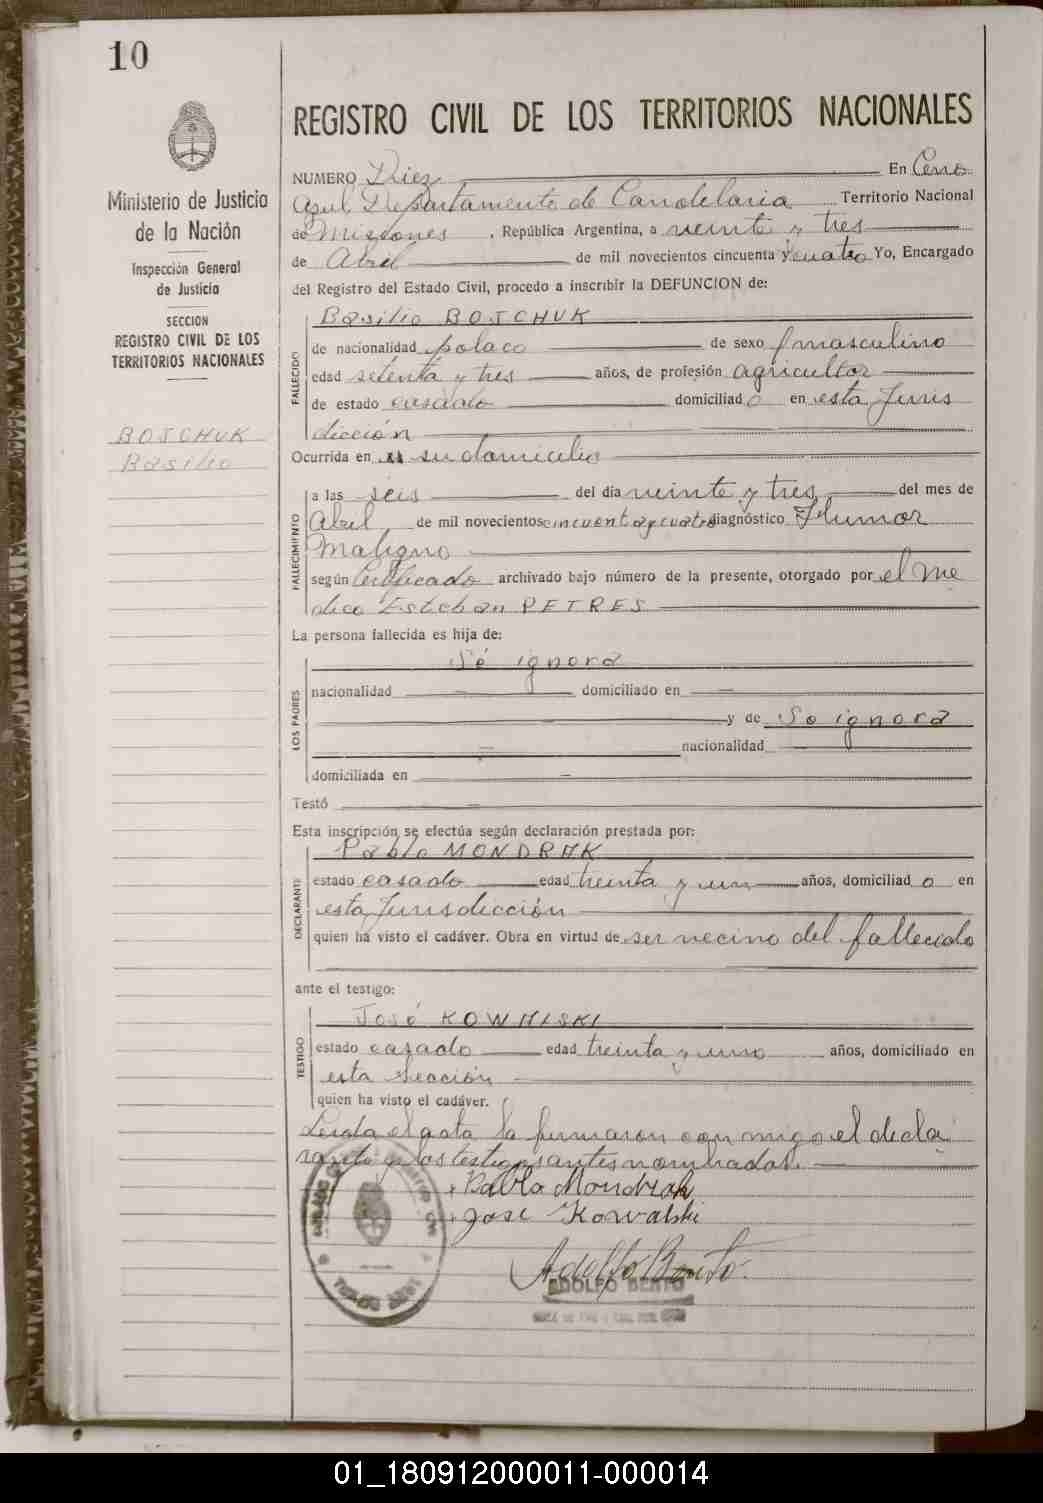 10
Ministerio de Justicia
de la Nación
Inspección General
de Justicia
SECCION
REGISTRO CIVIL DE LOS
TERRITORIOS NACIONALES
BOJCHUK
Basilio
REGISTRO CIVIL DE LOS TERRITORIOS NACIONALES
NUMERO Diez En Cerro
Azul Departamento de Candelaria Territorio Nacional
de Misiones, República Argentina, a veinte y tres
de Abril de mil novecientos cincuenta y cuatro Yo, Encargado
del Registro del Estado Civil, procedo a inscribir la DEFUNCION de:
Basilio BOJCHUK
FALLECIDO
de nacionalidad polaco de sexo masculino
edad setenta y tres años, de profesión agricultor
de estado casado domiciliado en esta Juris
dicción
Ocurrida en su domicilio
FALLECIMIENTO
a las seis del día veinte y tres del mes de
Abril de mil novecientos cincuenta y cuatro diagnóstico Tumor
Maligno
según Certificado archivado bajo número de la presente, otorgado por el me
dico Esteban PETRES
La persona fallecida es hija de:
LOS PADRES
Se ignora
nacionalidad — domiciliado en —
— y de Se ignora
— nacionalidad —
domiciliada en —
Testó —
Esta inscripción se efectúa según declaración prestada por:
DECLARANTE
Pablo MONDRAK
estado casado edad treinta y un años, domiciliado en
esta Jurisdicción
quien ha visto el cadáver. Obra en virtud de ser vecino del fallecido
ante el testigo:
TESTIGO
José KOWALSKI
estado casado edad treinta y uno años, domiciliado en
esta Sección
quien ha visto el cadáver.
Leida el acta la firmaron conmigo el decla
rante y los testigos antes nombrados.
Pablo Mondrak
José Kowalski
Adolfo Bento
ADOLFO BENTO
01_180912000011-000014